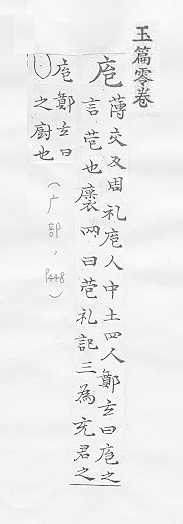 玉篇零卷
庖
薄交反周礼庖人中士四人鄭玄曰庖之
言苞也裹肉曰苞礼記三為充君之
庖鄭玄曰
之廚也
(广部, P448)